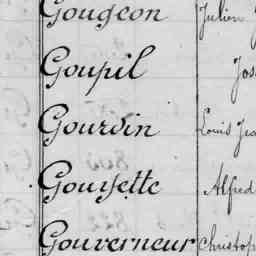 Gougeon Julien
Goupil Jos
Gourdin Louis Jea
Gouyette Alfred
Gouverneur Christop